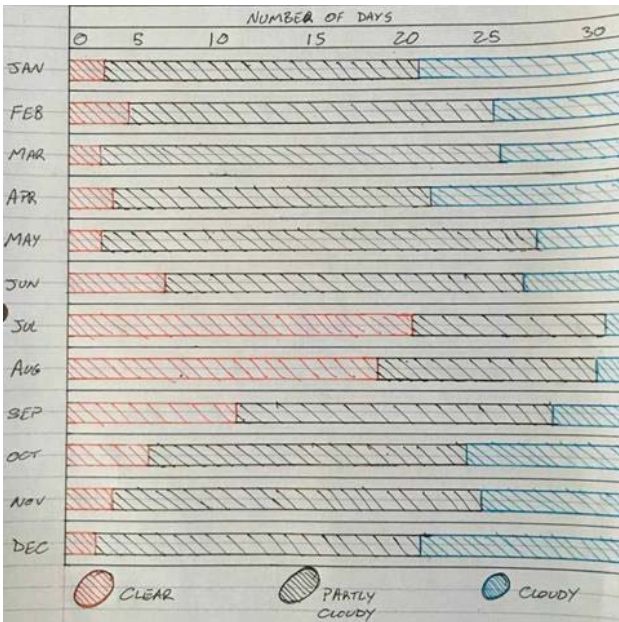 NUMBER OF DAYS
0 5 10 15 20 25 30
JAN
FEB
MAR
APR
MAY
JUN
JUL
AUG
SEP
OCT
NOV
DEC
CLEAR PARTLY CLOUDY
CLOUDY